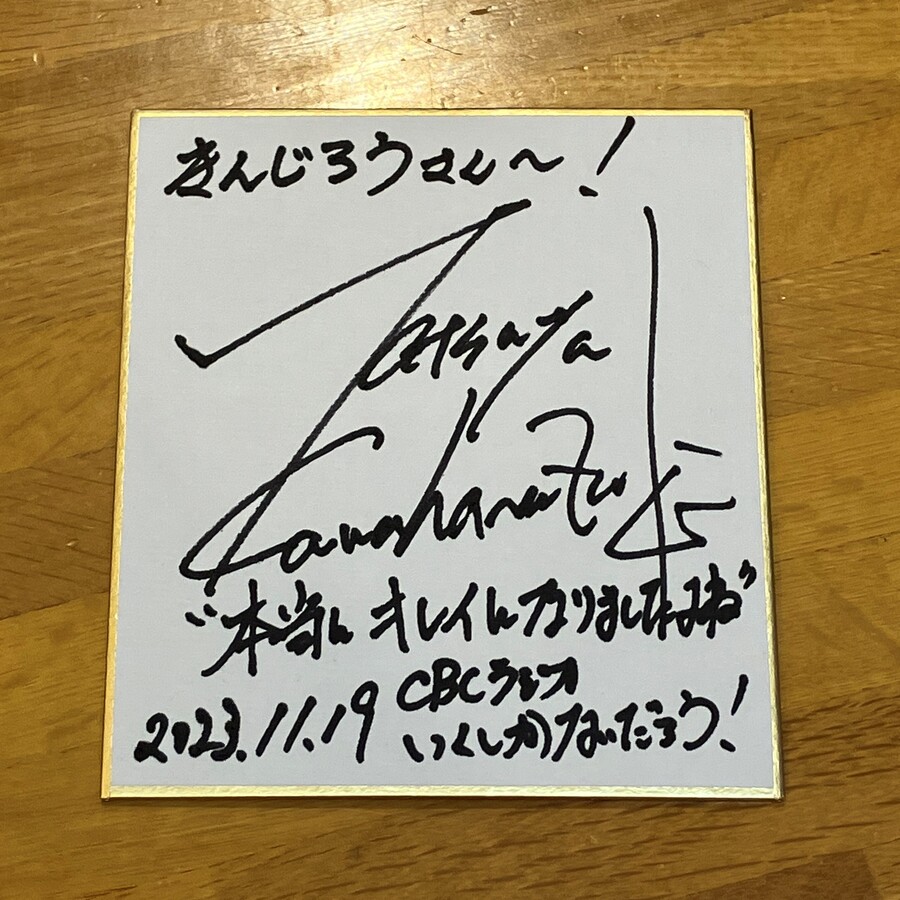 きんじろうさん〜！
Tatsuya
Kawahara
"本当にキレイになりましたよね"
2023.11.19
CBCラジオ
いくしかないだろう！